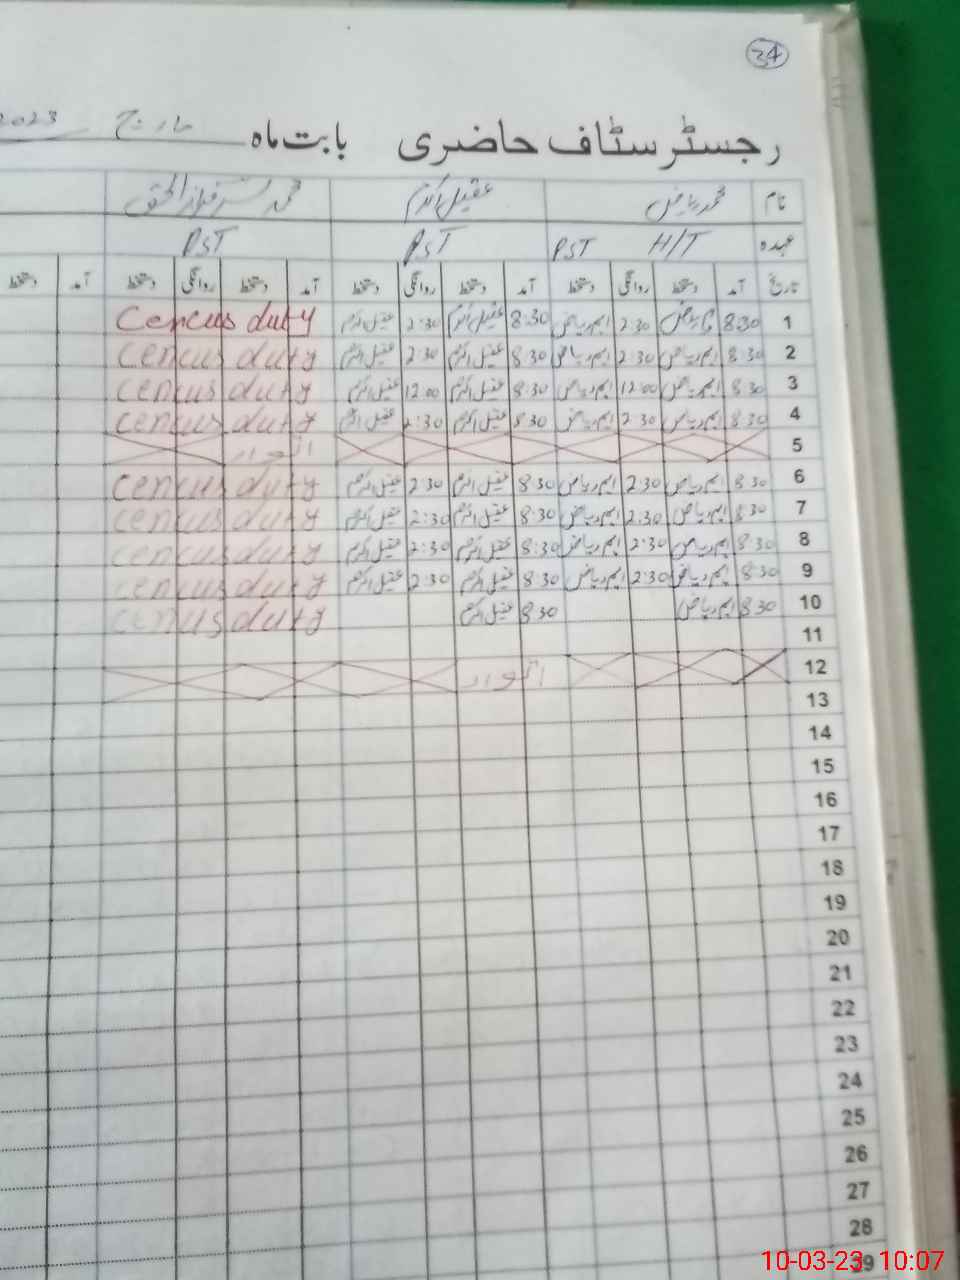 34
رجسٹر سٹاف حاضری بابت ماہ مارچ 2023
نام محمد ریاض عقیل اکرم محمد سرفراز الحق
عہدہ H/T PST PST PST
تاریخ آمد دستخط روانگی دستخط آمد دستخط روانگی دستخط آمد دستخط روانگی دستخط آمد دستخط
1 8:30 ایم ریاض 2:30 ایم ریاض 8:30 عقیل اکرم 2:30 عقیل اکرم Cencus duty
2 8:30 ایم ریاض 2:30 ایم ریاض 8:30 عقیل اکرم 2:30 عقیل اکرم Cencus duty
3 8:30 ایم ریاض 12:00 ایم ریاض 8:30 عقیل اکرم 12:00 عقیل اکرم Cencus duty
4 8:30 ایم ریاض 2:30 ایم ریاض 8:30 عقیل اکرم 2:30 عقیل اکرم Cencus duty
5 اتوار
6 8:30 ایم ریاض 2:30 ایم ریاض 8:30 عقیل اکرم 2:30 عقیل اکرم Cencus duty
7 8:30 ایم ریاض 2:30 ایم ریاض 8:30 عقیل اکرم 2:30 عقیل اکرم Cencus duty
8 8:30 ایم ریاض 2:30 ایم ریاض 8:30 عقیل اکرم 2:30 عقیل اکرم Cencus duty
9 8:30 ایم ریاض 2:30 ایم ریاض 8:30 عقیل اکرم 2:30 عقیل اکرم Cencus duty
10 8:30 ایم ریاض 8:30 عقیل اکرم Cencus duty
11
12 اتوار
13
14
15
16
17
18
19
20
21
22
23
24
25
26
27
28
29
10-03-23 10:07